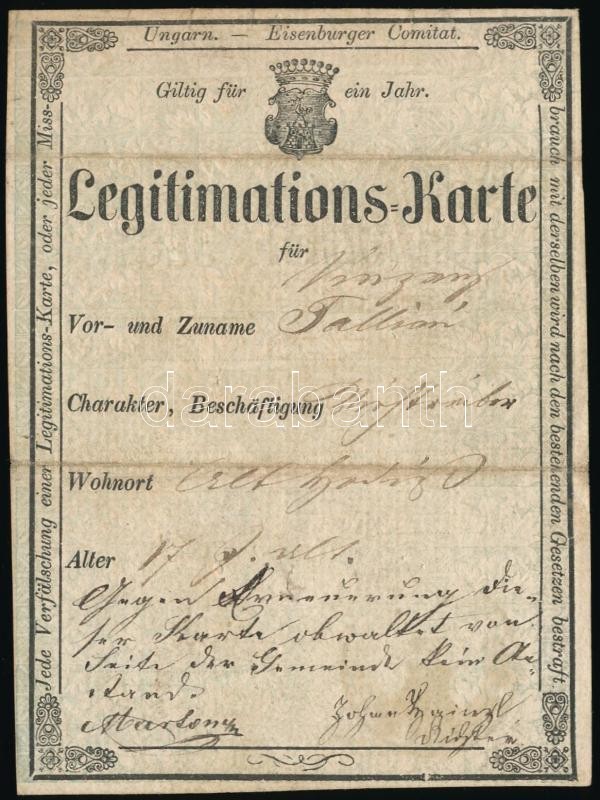 Ungarn. — Eisenburger Comitat.
Giltig für ein Jahr.
Legitimations-Karte
für
Vinzenz
Vor- und Zuname Tallian
Charakter, Beschäftigung
Wohnort Alt Hodis
Alter 17 J. alt.
Gegen Erneuerung die-
ser Karte obwaltet von
Seite der Gemeinde kein An-
stand.
Johann
Richter
Jede Verfälschung einer Legitimations-Karte, oder jeder Miss-
brauch mit derselben wird nach den bestehenden Gesetzen bestraft.
darabanth